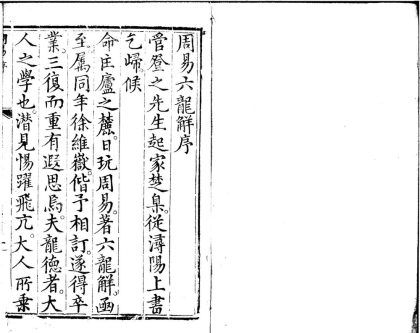 周易六龍解序
管登之先生起家楚臬從潯陽上書
乞歸候
命匡廬之麓日玩周易著六龍解函
至屬同年徐維嶽偕予相訂遂得卒
業三復而重有遐思焉夫龍德者大
人之學也潛見惕躍飛亢大人所乗